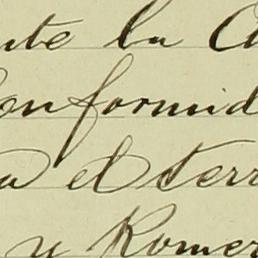 nte la A
Conformid
a el terr
y Romer